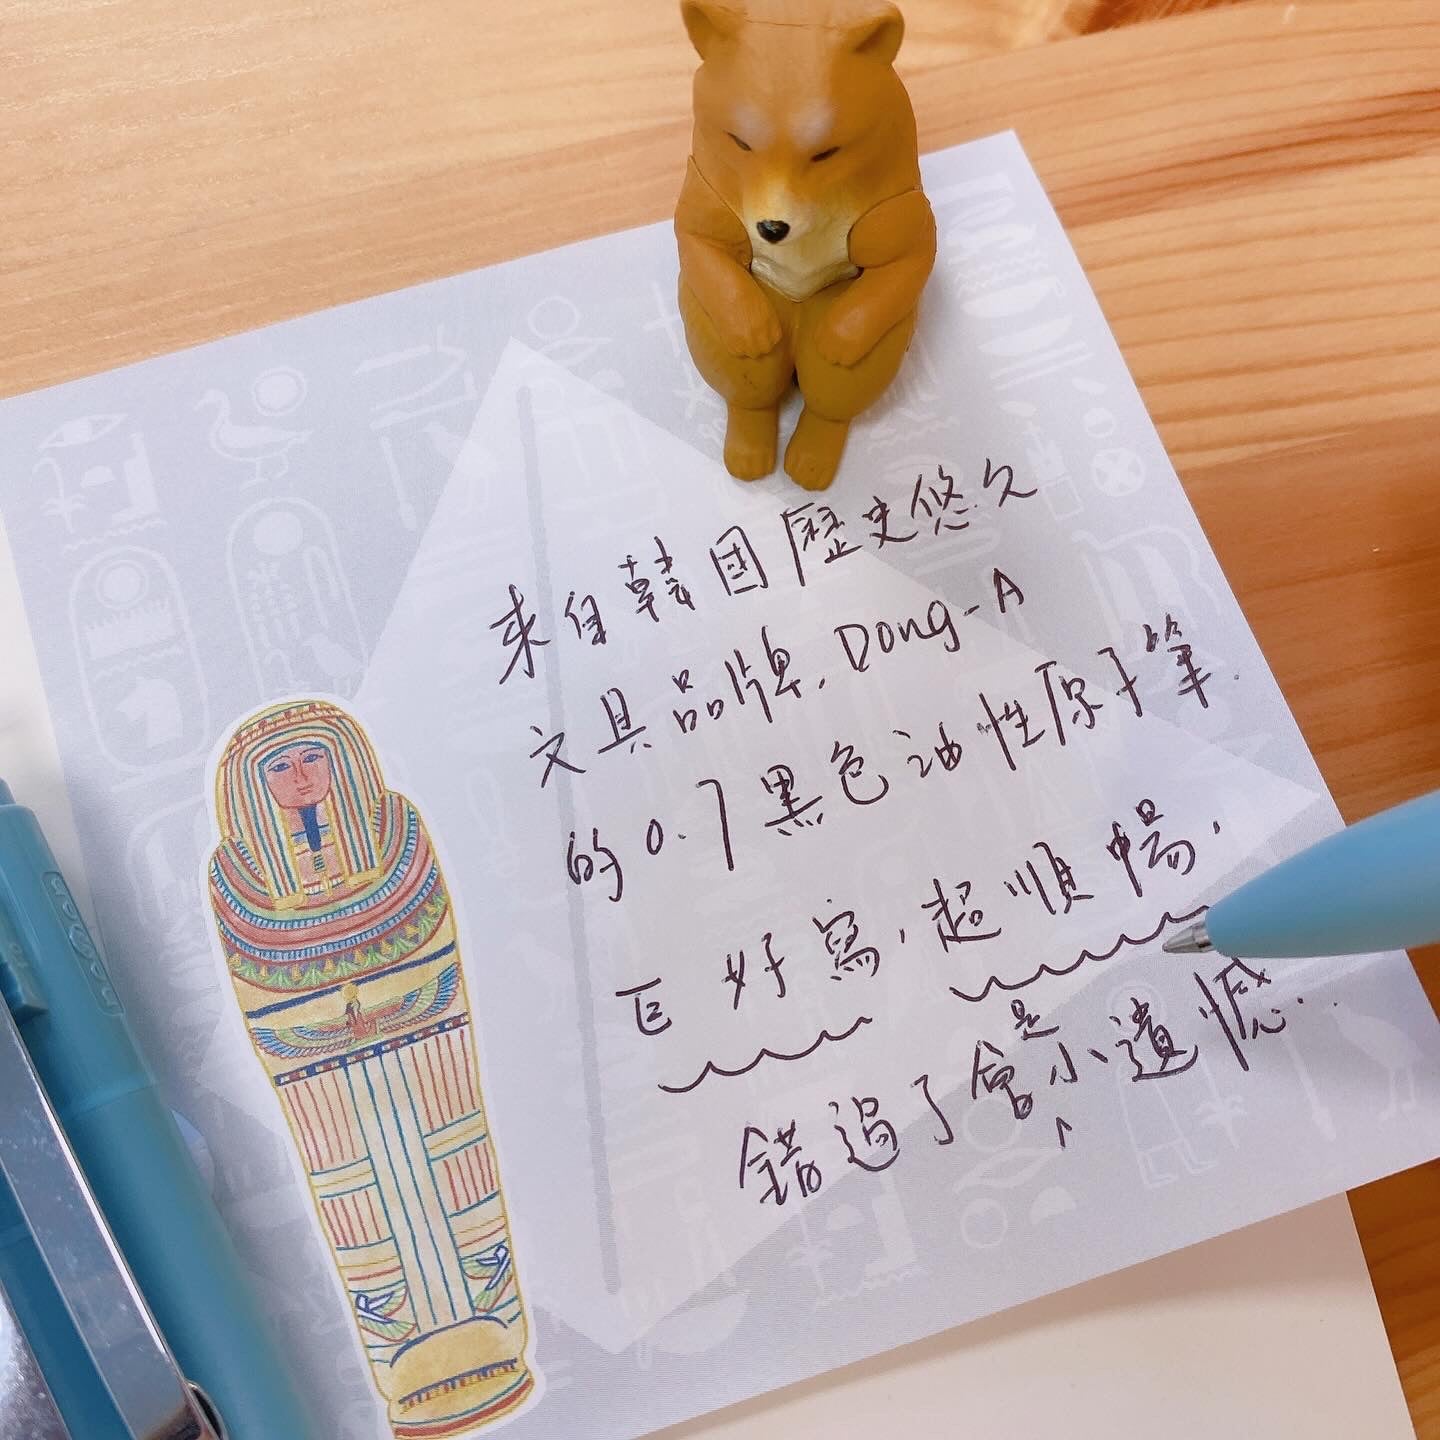 來自韓國歷史悠久
文具品牌,Dong-A
的0.7黑色油性原子筆.
巨好寫,超順暢,
錯過了會是小遺憾...